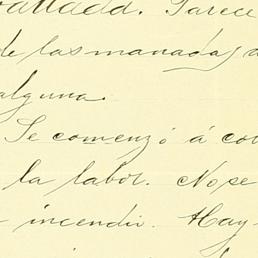 Parece
de las manadas
alguna.
Se comenzó á
la labor. No se
incendio. Hay